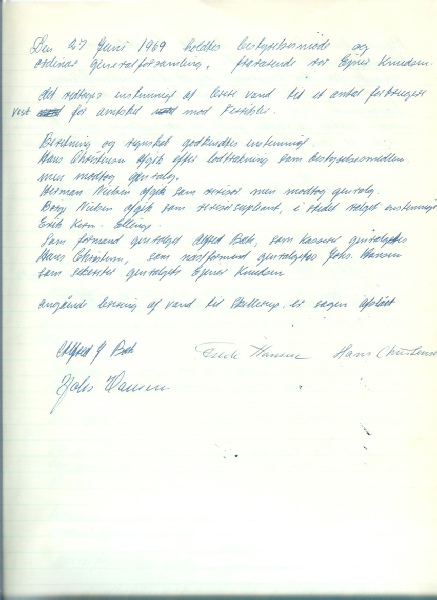 Den 27 Juni 1969 holdtes bestyrelsesmøde og
ordinær generalforsamling, fraværende var Ejner Knudsen.
det vedtoges enstemmigt at levere vand til et antal forbrugere
vest for amtsskel mod
Beretning og regnskab godkendtes enstemmigt
Hans Christensen afgik efter lodtrækning som bestyrelsesmedlem
men modtog genvalg.
Herman Nielsen afgik som revisor men modtog genvalg.
Borg Nielsen afgik som revisorsuppleant, i stedet valgtes enstemmigt
Erik Elling.
Som formand genvalgtes Alfred Bak, som kasserer genvalgtes
Hans Christensen, som næstformand genvalgtes Johs. Hansen
som sekretær genvalgtes Ejner Knudsen
angående levering af vand til er sagen afsluttet
Alfred J Bak Hansen Hans Christensen
Johs Hansen